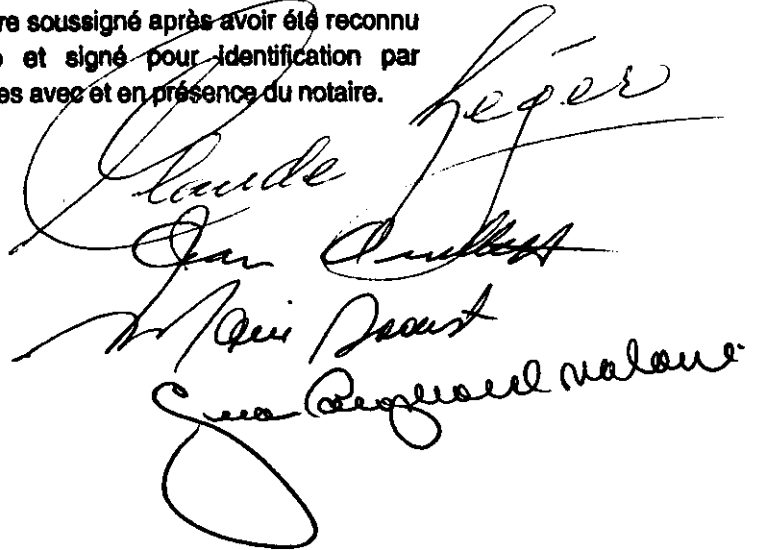 re soussigné après avoir été reconnu
et signé pour identification par
es avec et en présence du notaire.
Claude Léger
Jean
Daoust
notaire